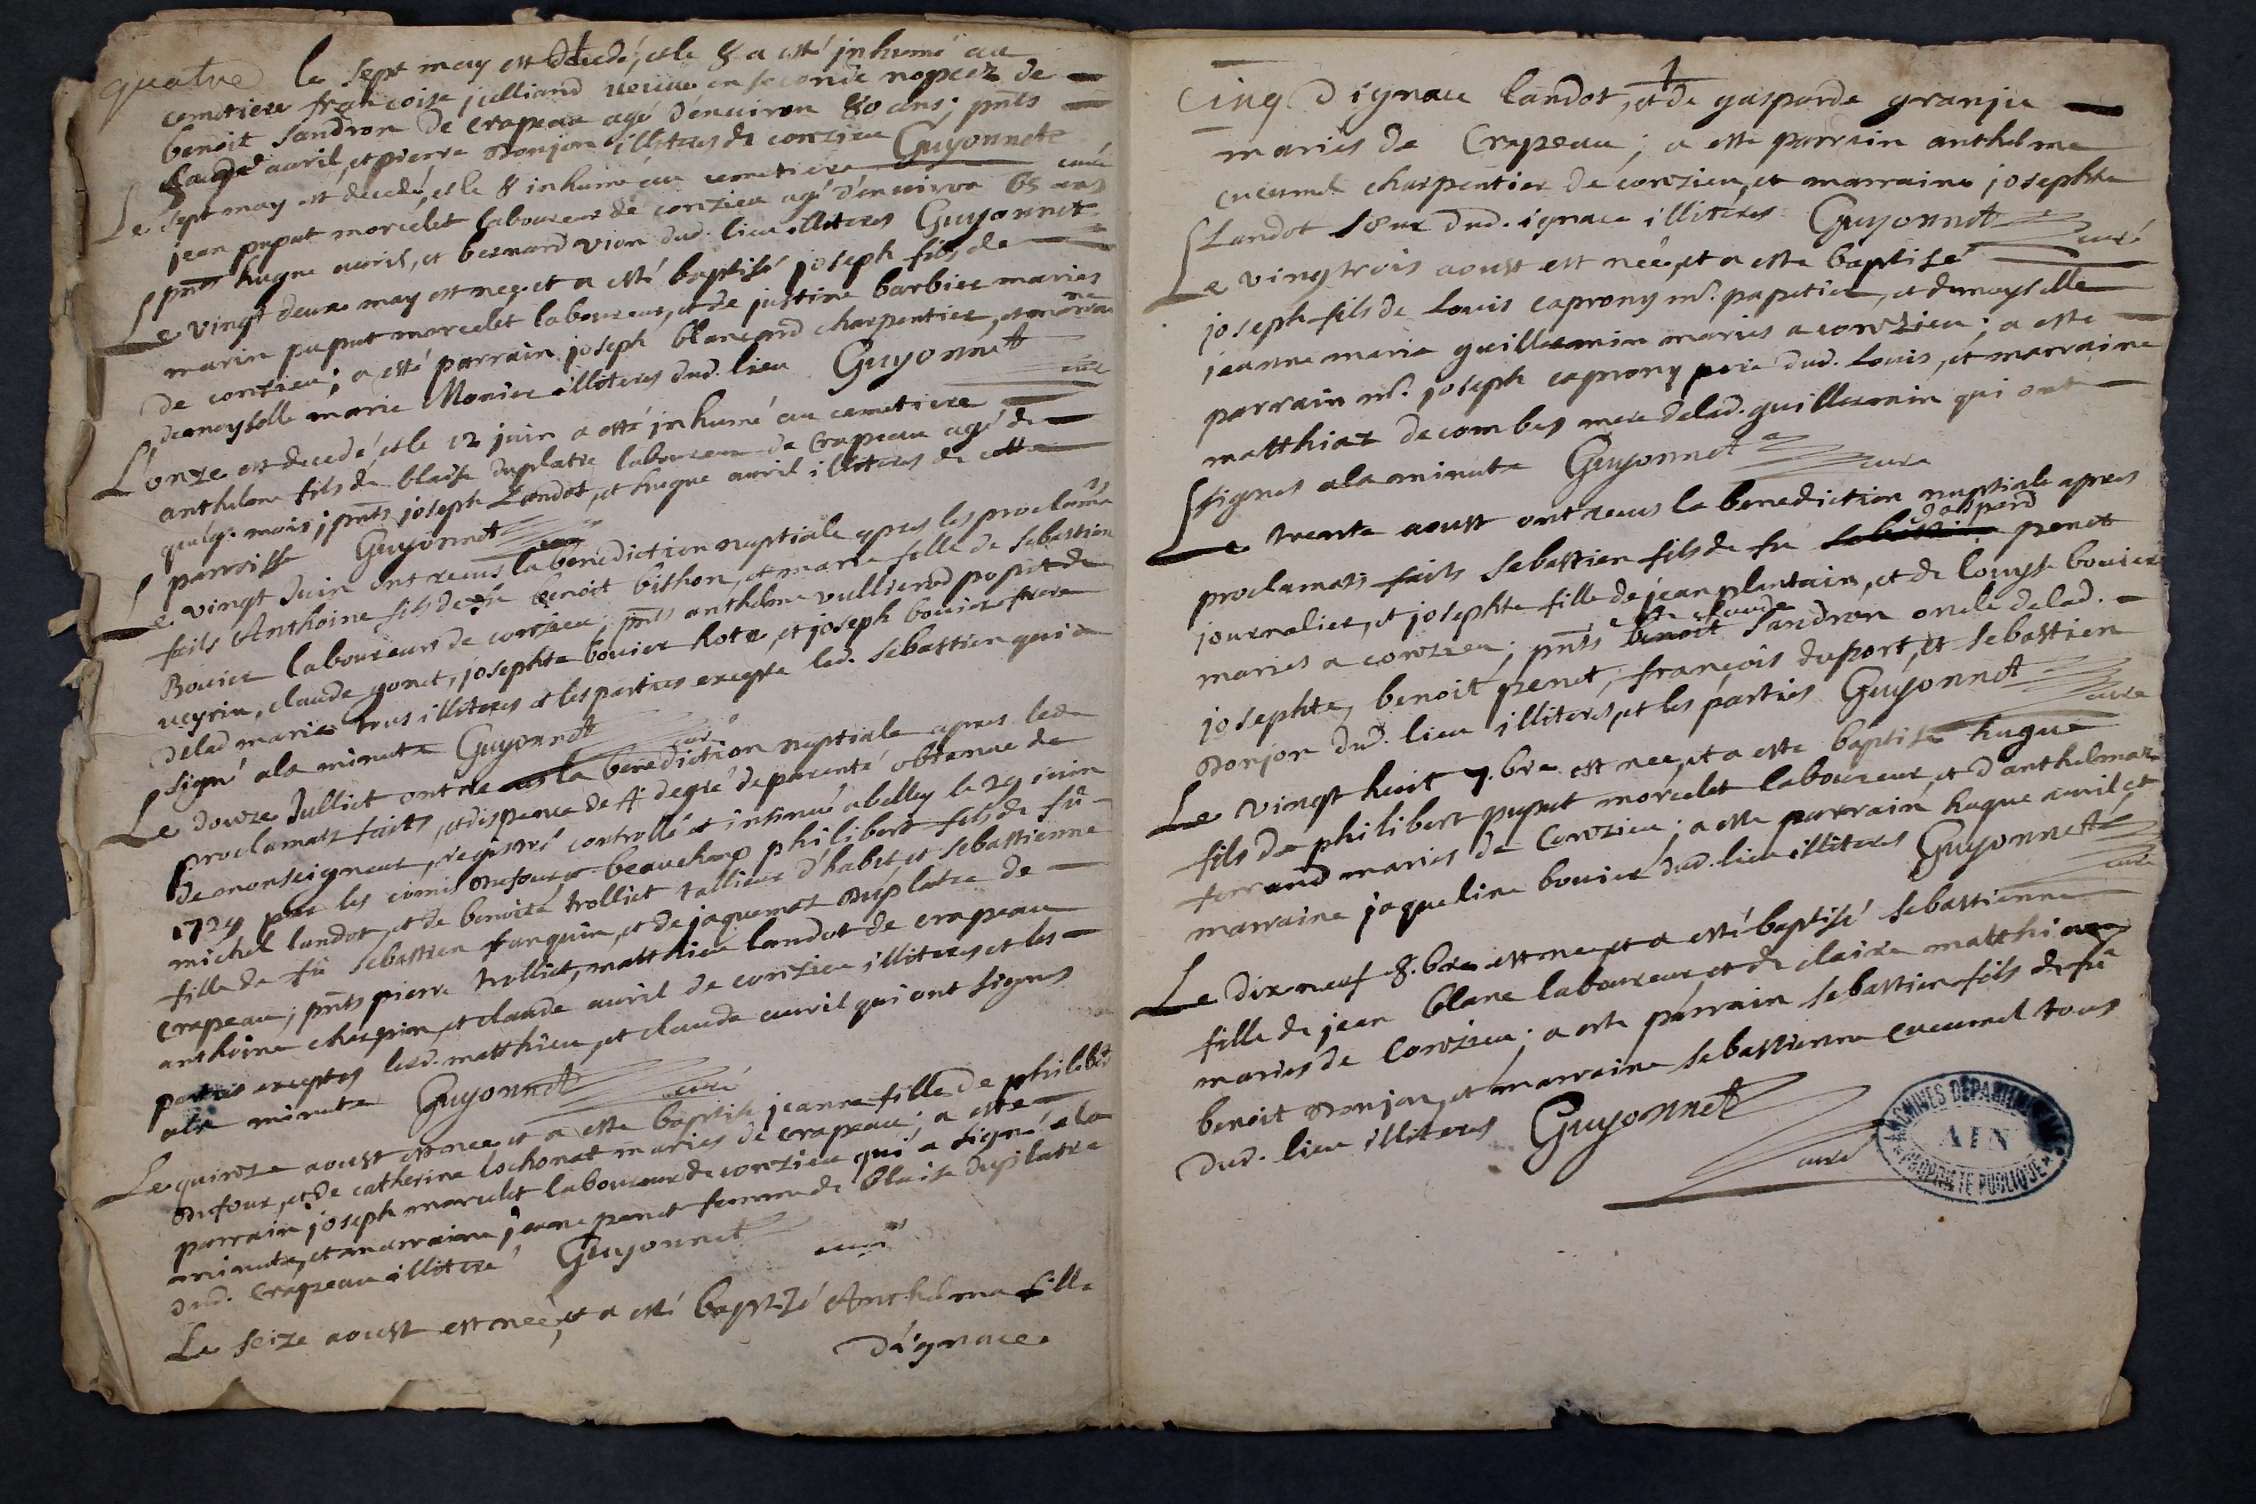 quatre le sept may est decedé, et le 8 a esté inhumé au
cemetiere françoise julliand veuve en seconde nopces de
benoit sandron de crapeau agé d'environ 80 ans; pnts
claude avril, et pierre donjon illiteres de conzieu Guyonnet
curé
Le sept may est decedé, et le 8 inhumé au cemetiere
jean puput morcelet laboureur de conzieu agé d'environ 65 ans
pnts hugue avril, et bernard vion dud. lieu illiteres Guyonnet
Le vingt deux may est nee et a esté baptisé joseph fils de
marin puput morcelet laboureur, et de justine barbier maries
de conzieu; a esté parrain joseph blancard charpentier, et marraine
demoyselle marie Monier illiteres dud. lieu Guyonnet
curé
L'onze est decedé, et le 12 juin a esté inhumé au cemetiere
anthelme fils de blaise duplatre laboureur de Crapeau agé de
quelq. mois; pnts joseph Landot, et hugue avril illiteres de cette
parroisse Guyonnet curé
Le vingt Juin ont receus la benediction nuptiale apres les proclamats
faits Anthoine fils de fû benoit bithon, et marie fille de sebastien
Bovier laboureurs de conzieu, pnts anthelme vullierod puput de
veyrin, claude gonet, josephte bovier hote, et joseph bovier frere
delad. mariée tous illiteres et les parties excepté led. sebastien qui a
signé a la minute Guyonnet curé
Le douze Julliet ont receus la benediction nuptiale apres les
proclamats faits, et dispence de 4e degré de parenté obtenue de
de monseigneur, registré controllé et insinué a belley le 29 juin
1729 par les commis dufour, et beauchamp philibert fils de fû
michel landot, et de benoite trolliet tallieur d'habit, et sebastienne
fille de fû sebastien janquin, et de jaquemaz duplatre de
crapeau, pnts pierre trolliet, matthieu landot de crapeau
anthoine charpin, et claude avril de conzieu illiteres et les
parties exceptes led. matthieu, et claude avril qui ont signes
a la minute Guyonnet curé
Le quinze aoust est nee et a esté baptisée jeanne fille de philibert
dufour, et de catherine lochonat maries de crapeau; a esté
parrain joseph morcelet laboureur de conzieu qui a signé a la
minute, et marraine jeane penet femme de blaise duplatre
dud. Crapeau illiteré Guyonnet
curé
Le seize aoust est neé, et a esté baptizé Anthelma fille
d'ignace
Cinq D'ignace landot, et de gasparde granjie
mariés de Crapeau; a esté parrain anthelme
cucumel charpentier de conzieu, et marraine josephte
Landot soeur dud. ignace illiteres Guyonnet
curé
Le vingtrois aoust est neé, et a esté baptisé
joseph fils de Louis caprony mr. papetier, et demoyselle
jeanne marie guillermin maries a conzieu; a esté
parrain mr. joseph caprony pere dud. Louis, et marraine
matthiaz decombes mere delad. guillermin qui ont
signes a la minute Guyonnet
cure
Le trente aoust ont receus la benediction nuptiale apres
gaspard
proclamats faits sebastien fils de fû penet
journalier, et josephte fille de jean plantain, et de louyse bovier
claude
maries a conzieu; pnts benoit sandron oncle delad.
josephte, benoit penet, françois dufort, et sebastien
donjon dud. lieu illiteres, et les parties Guyonnet
cure
Le vingt huit 7.bre est nee, et a esté baptisé hugue
fils de philibert puput morcelet laboureur, et d'anthelmaz
ferrand maries de Conzieu; a esté parrain hugue avril, et
marraine jaqueline bovier dud. lieu illiteres Guyonnet
curé
Le dix neuf 8.bre est nee, et a esté baptisé sebastienne
fille de jean blanc laboureur, et de claire matthieu
maries de Conzieu; a esté parrain sebastien fils de fû
benoit donjon, et marraine sebastienne cucumel tous
dud. lieu illiteres Guyonnet
curé
ARCHIVES DÉPARTEMENTALES
AIN
PROPRIÉTÉ PUBLIQUE